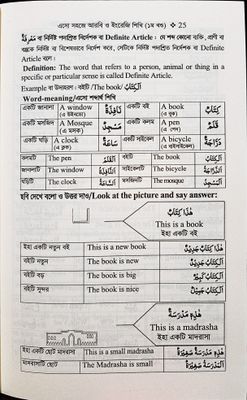 এসো সহজে আরবি ও ইংরেজি শিখি (১ম খণ্ড) 25
مَعْرِفَةٌ বা নির্দিষ্ট পদাশ্রিত নির্দেশক বা Definite Article : যে শব্দ কোনো ব্যক্তি, প্রাণী বা
বস্তুকে নির্দিষ্ট বা বিশেষভাবে নির্দেশ করে, সেটিকে নির্দিষ্ট পদাশ্রিত নির্দেশক বা Definite
Article বলে।
Definition: The word that refers to a person, animal or thing in a
specific or particular sense is called Definite Article.
Example বা উদাহরণ : বইটি /The book/ اَلْكِتَابُ
Word-meaning/এসো শব্দার্থ শিখি
একটি জানালা A window (এ উইন্ডো) نَافِذَةٌ একটি বই A book (এ বুক) كِتَابٌ
একটি মসজিদ A Mosque (এ মসক) مَسْجِدٌ একটি কলম A pen (এ পেন) قَلَمٌ
একটি ঘড়ি A clock (এ ক্লক) سَاعَةٌ একটি সাইকেল A bicycle (এ বাইসাইকেল) دَرَّاجَةٌ
কলমটি The pen اَلْقَلَمُ বইটি The book اَلْكِتَابُ
জানালাটি The window اَلنَّافِذَةُ সাইকেলটি The bicycle اَلدَّرَّاجَةُ
ঘড়িটি The clock اَلسَّاعَةُ মসজিদটি The mosque اَلْمَسْجِدُ
ছবি দেখে বলো ও উত্তর দাও/Look at the picture and say answer:
هٰذَا كِتَابٌ
This is a book
ইহা একটি বই
ইহা একটি নতুন বই This is a new book هٰذَا كِتَابٌ جَدِيْدٌ
বইটি নতুন The book is new اَلْكِتَابُ جَدِيْدٌ
বইটি বড় The book is big اَلْكِتَابُ كَبِيْرٌ
বইটি সুন্দর The book is nice اَلْكِتَابُ جَمِيْلٌ
هٰذِهِ مَدْرَسَةٌ
This is a madrasha
ইহা একটি মাদরাসা
ইহা একটি ছোট মাদরাসা This is a small madrasha هٰذِهِ مَدْرَسَةٌ صَغِيْرَةٌ
মাদরাসাটি ছোট The Madrasha is small اَلْمَدْرَسَةُ صَغِيْرَةٌ